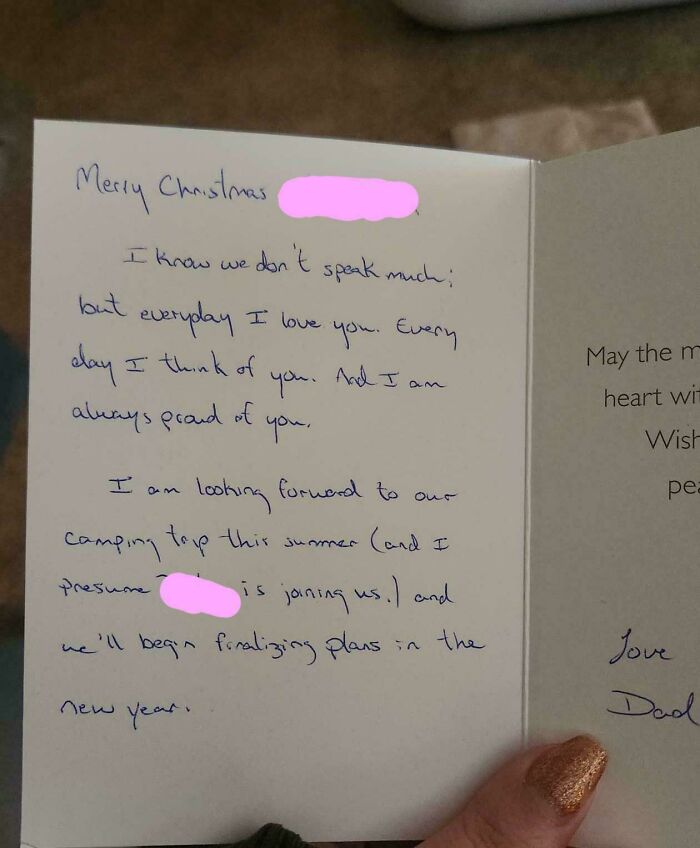 Merry Christmas
I know we don't speak much;
but everyday I love you. Every
day I think of you. And I am
always proud of you.
I am looking forward to our
camping trip this summer (and I
presume is joining us.) and
we'll begin finalizing plans in the
new year.
May the m
heart wit
Wish
pea
Love
Dad